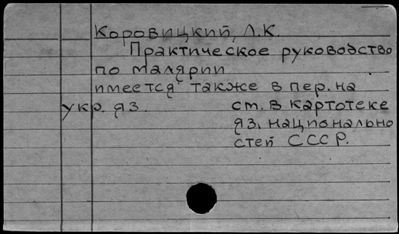 Коровицкий, Л.К.
Практическое руководство
по малярии
имеется также в пер. на
укр. яз. ст. в картотеке
яз. национально
стей СССР.